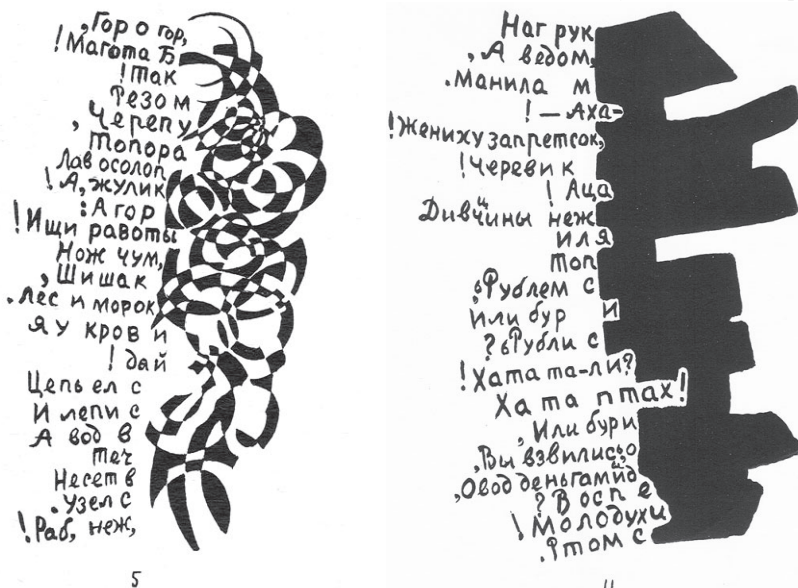 ,Гор о гор,
!Магота Б
!Так
Резом
,Черепу
Топора
Лав осолоп
!А, жулик
:А гор
!Ищи работы
Нож чум,
,Шишак
.лес и морок
я у кров и
!дай
Цепь ел с
И лепи с
А вод в
теч
Несет в
.Узел с
!Раб, неж,
5
Наг рук
,А ведом,
.Манила м
!—Аха-
!Жениху запретсок,
!Черевик
!Аца
Дивчины неж
иля
топ
Рублем с
Или бур и
?Рубли с
!Хата та-ли?
Ха та птах!
,Или бури
,Вы взвились,о
,Овод деньгам
?В оспе
!Молодухи
.Ртом с